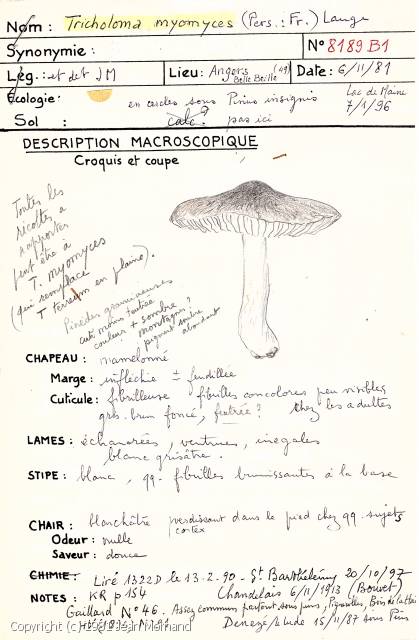 Nom : Tricholoma myomyces (Pers. : Fr.) Lange
Synonymie :
N° 8189 B1
Lég. : et det JM
Lieu : Angers (49)
Belle Beille
Date : 6/11/81
Ecologie : en cercles sous Pinus insignis
Lac de Maine
7/1/96
Sol : calc. ? pas ici
DESCRIPTION MACROSCOPIQUE
Croquis et coupe
Toutes les
récoltes, à
rapporter
peut être à
T. myomyces
(qui remplace
T terreum en plaine).
Pinèdes
cuti moins feutrée
couleur + sombre ?
montagne ?
pigment sombre
abondant
CHAPEAU : mamelonné
Marge : infléchie ± fendillée
Cuticule : fibrilleuse fibrilles concolores peu visibles
gris brun foncé, feutrée ? chez les adultes
LAMES : échancrées, ventrues, inégales
blanc grisâtre.
STIPE : blanc, qq. fibrilles brunissantes à la base
CHAIR : blanchâtre verdissant dans le pied chez qq. sujets
cortex
Odeur : nulle
Saveur : douce
CHIMIE : Liré 1322D le 13-2-90 - St Barthélémy 20/10/97
NOTES : KR p 154 Chandelais 6/11/1913 (Bouvet)
Gaillard N° 46. Assez commun partout sous pins,
Denezé/s Lude 15/11/87 sous Pins